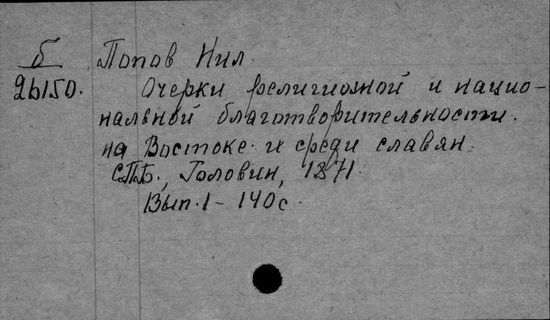 б Попов Нил.
26150. Очерки религиозной и нацио-
нальной благотворительности
на Востоке и среди славян.
СПБ., Головин, 1871.
Вып. 1 - 140 с.